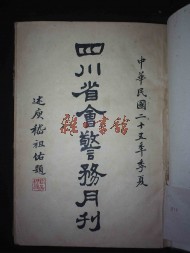 中華民國二十五年季夏
四川省會警務月刊
祖佑題